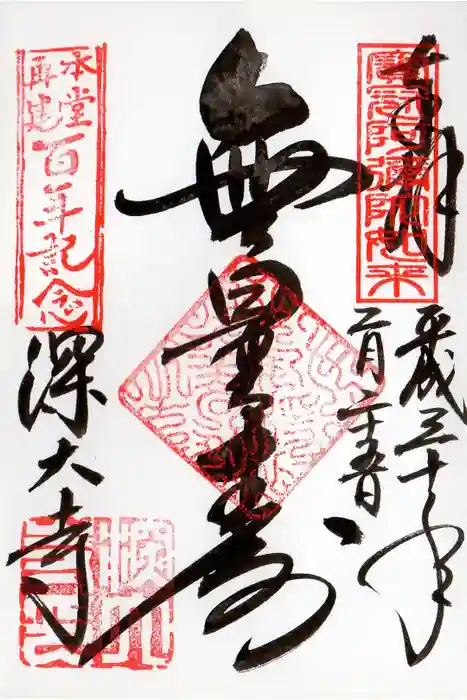 奉拝
寳冠阿彌陀如来
平成三十年
二月二十五日
無量寿
本堂再建
百年記念
深大寺